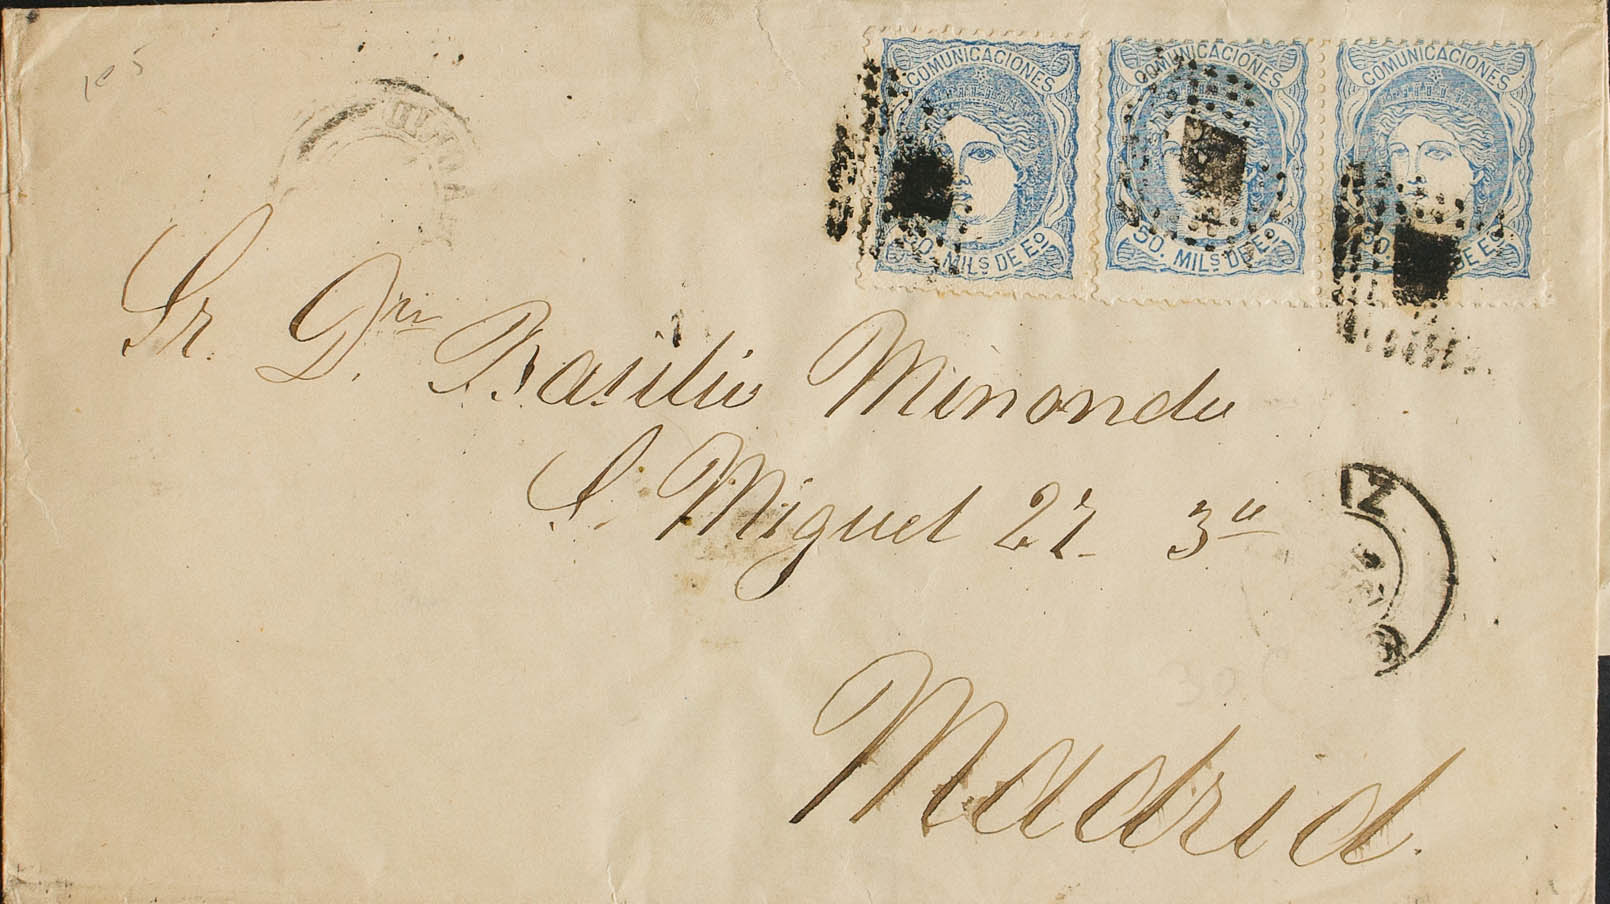 COMUNICACIONES COMUNICACIONES COMUNICACIONES
50. MILS DE EO. 50. MILS DE EO. 50. MILS DE EO.
Sr. Dn. Basilio Minondo
S. Miguel 27 3o
IZ
Madrid.